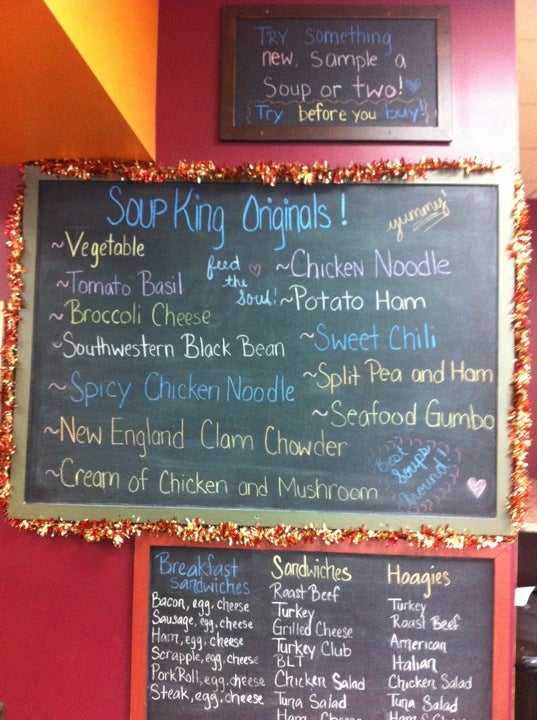 Try something
new, sample a
Soup or two!
Try before you buy!
Soup King Originals!
yummy!
~Vegetable
~Tomato Basil
~Broccoli Cheese
~Southwestern Black Bean
~Spicy Chicken Noodle
~New England Clam Chowder
~Cream of Chicken and Mushroom
feed
the
Soul!
~Chicken Noodle
~Potato Ham
~Sweet Chili
~Split Pea and Ham
~Seafood Gumbo
Best
Soups
Around!
Breakfast
Sandwiches
Bacon, egg, cheese
Sausage, egg, cheese
Ham, egg, cheese
Scrapple, egg, cheese
Pork Roll, egg, cheese
Steak, egg, cheese
Sandwiches
Roast Beef
Turkey
Grilled Cheese
Turkey Club
BLT
Chicken Salad
Tuna Salad
Ham Cheese
Hoagies
Turkey
Roast Beef
American
Italian
Chicken Salad
Tuna Salad